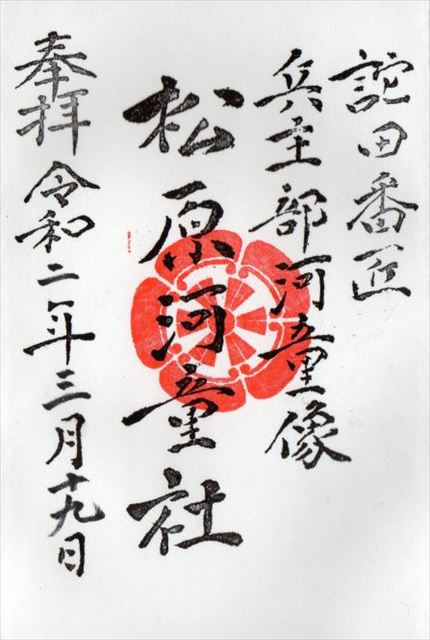 詑田番匠
兵主部河童像
松原河童社
奉拝 令和二年三月十九日